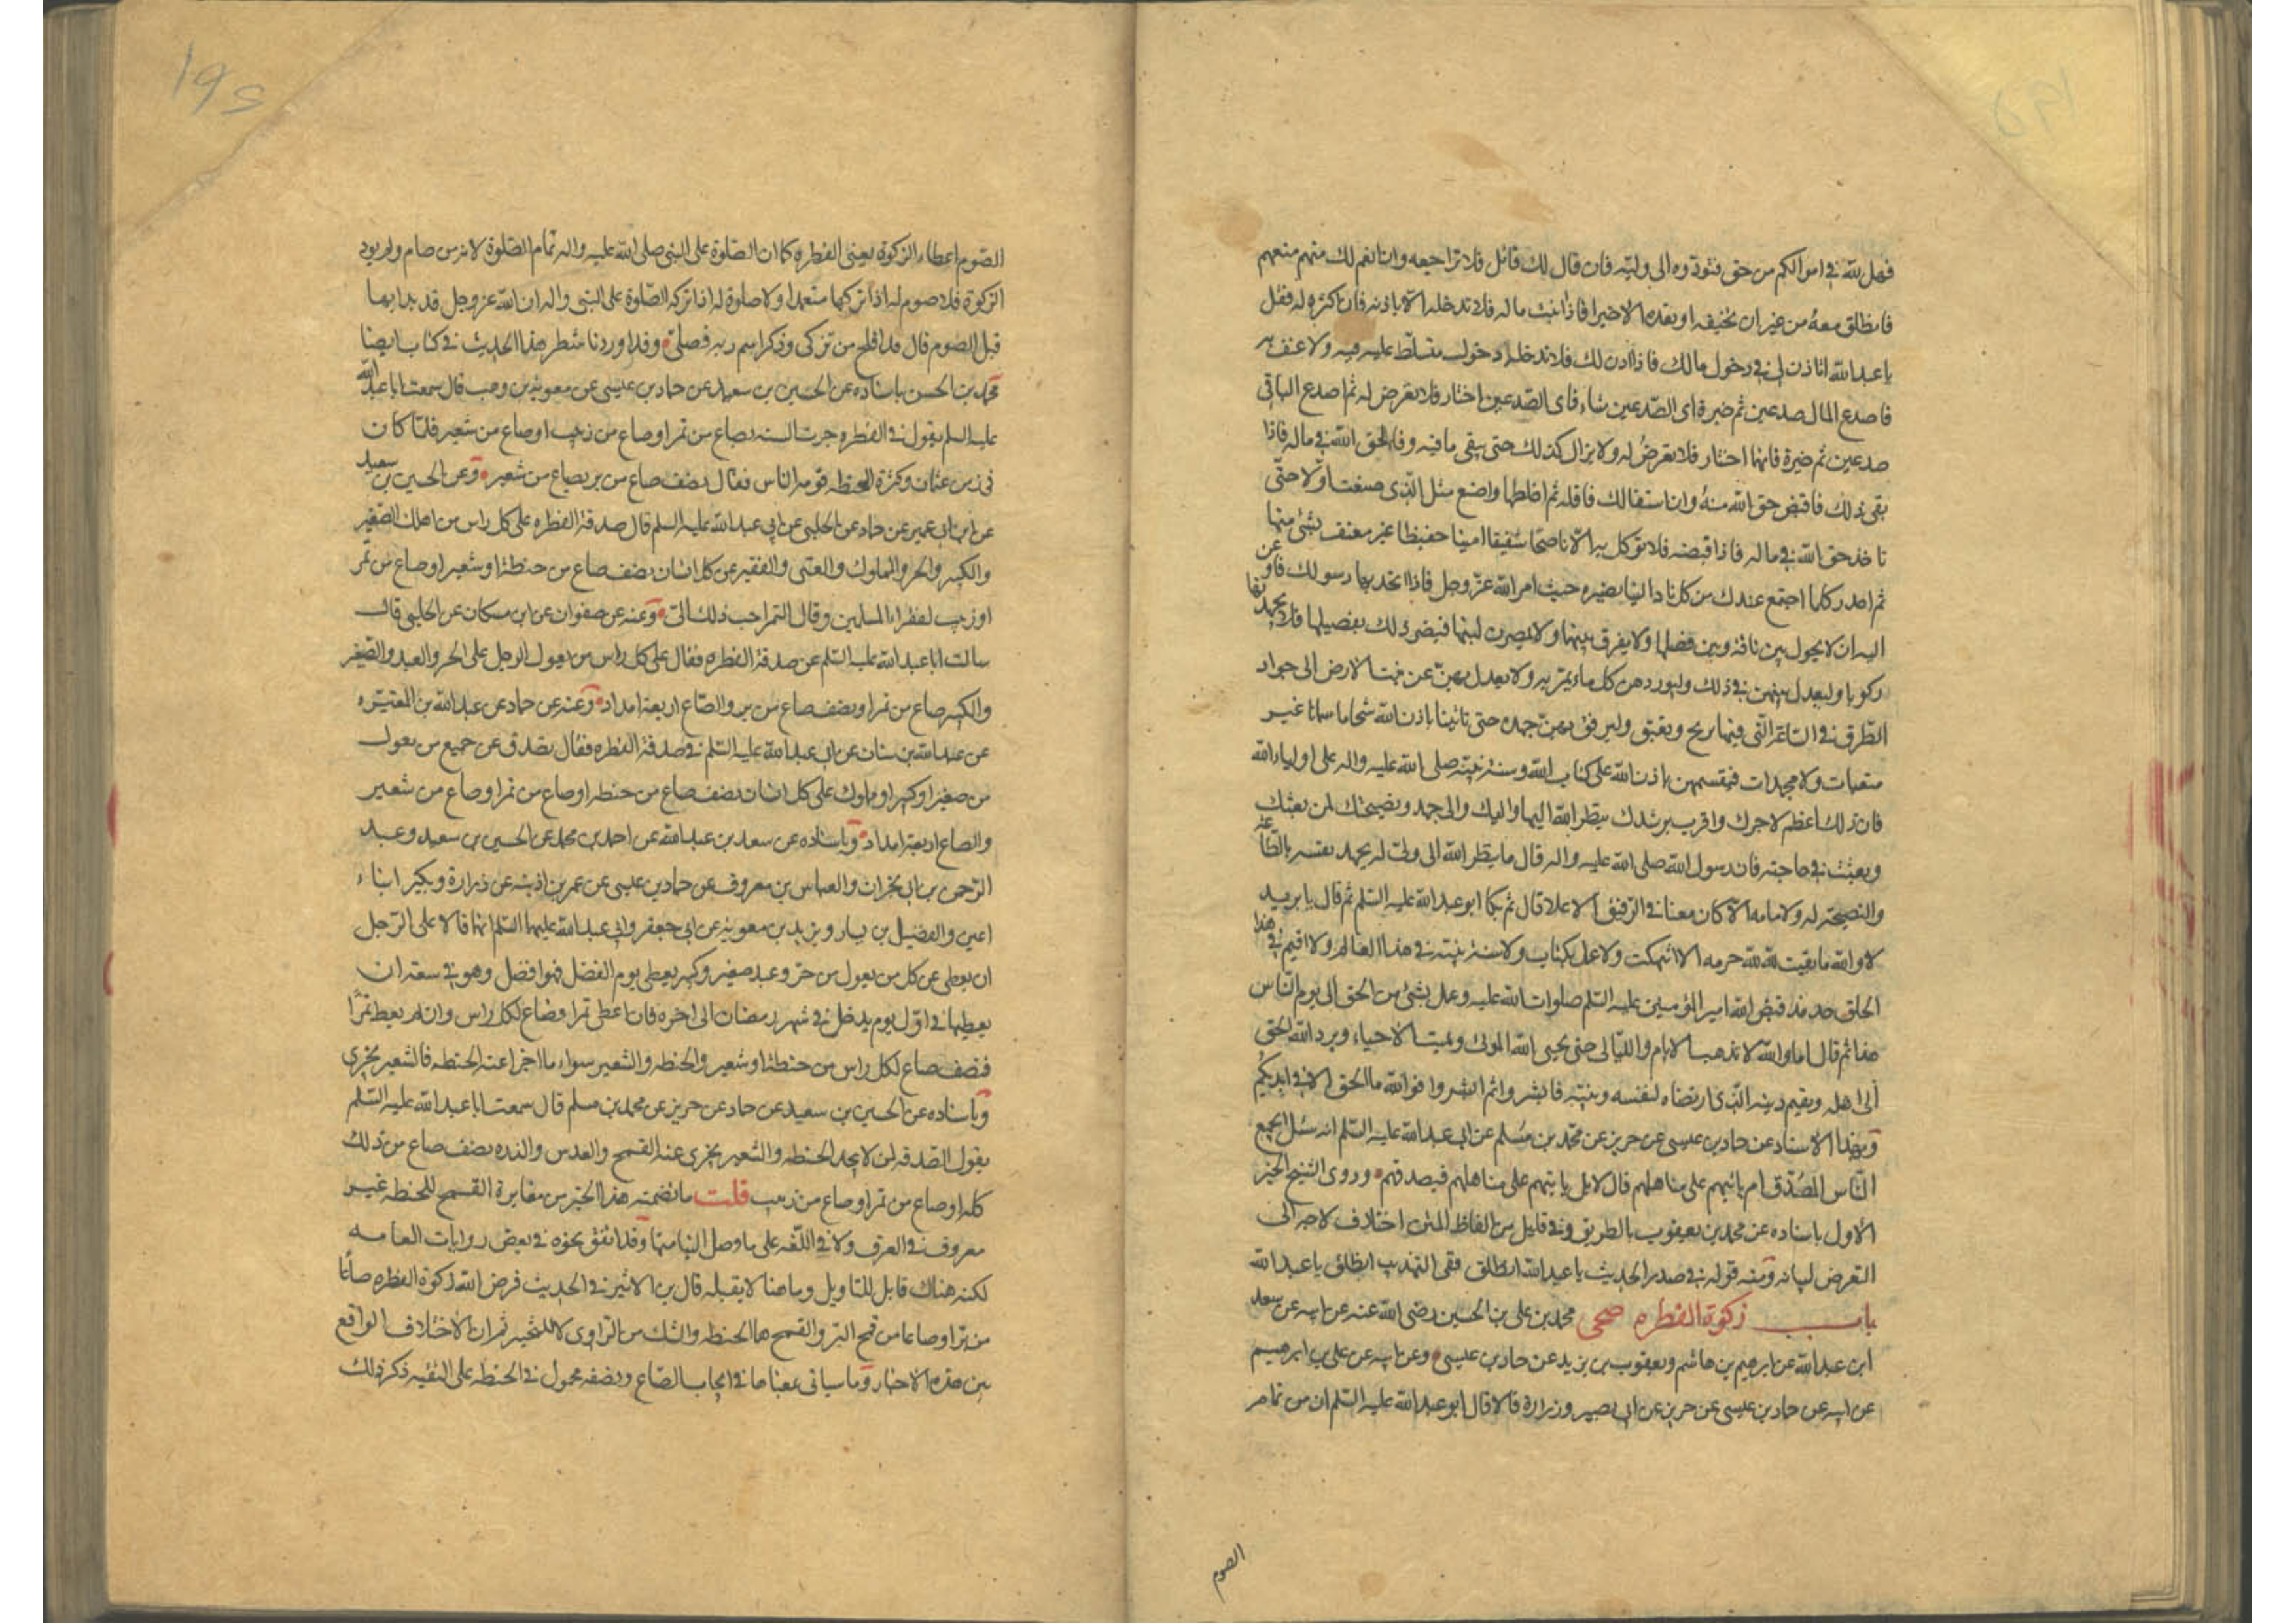 فهل لله في اموالكم من حق فتؤدوه الى وليه فان قال لك قائل لا فلا تراجعه وان انعم لك منهم منعم
فانطلق معه من غير ان تخيفه او تعده الا خيرا فاذا اتيت ماله فلا تدخله الا باذنه فان اكثره له فقل
يا عبد الله اتاذن لي في دخول مالك فاذا اذن لك فلا تدخله دخول متسلط عليه فيه ولا عنف به
فاصدع المال صدعين ثم خيره اى الصدعين شاء فاى الصدعين اختار فلا تعرض له ثم اصدع الباقي
صدعين ثم خيره فايهما اختار فلا تعرض له ولا يزال كذلك حتى يبقى ما فيه وفاء لحق الله في ماله فاذا
بقى ذلك فاقبض حق الله منه وان استقالك فاقله ثم اخلطها واصنع مثل الذى صنعت اولا حتى
تاخذ حق الله في ماله فاذا قبضته فلا توكل به الا ناصحا شفيقا امينا حفيظا غير معنف بشئ منها
ثم احدر كلما اجتمع عندك من كل ناد الينا نصيره حيث امر الله عز وجل فاذا انحدر بها رسولك فاوعز
اليه ان لا يحول بين ناقة وبين فصيلها ولا يفرق بينهما ولا يمصرن لبنها فيضر ذلك بفصيلها فلا يجهد بها
ركوبا وليعدل بينهن في ذلك وليوردهن كل ماء يمر به ولا يعدل بهن عن نبت الارض الى جواد
الطرق في الساعة التي فيها تريح وتعنق وليرفق بهن جهده حتى تاتينا باذن الله سحاحا سمانا غير
متعبات ولا مجهدات فيقسمهن باذن الله على كتاب الله وسنة نبيه صلى الله عليه واله على اولياء الله
فان ذلك اعظم لاجرك واقرب لرشدك ينظر الله اليها واليك والى جهدك ونصيحتك لمن بعثك
وبعثت في حاجته فان رسول الله صلى الله عليه واله قال ما ينظر الله الى ولى له يجهد نفسه بالطاعة
والنصيحة له ولامامه الا كان معنا في الرفيق الاعلا قال ثم بكا ابو عبد الله عليه السلم ثم قال يا بريد
لا والله ما بقيت لله حرمه الا انتهكت ولا عمل بكتاب ولا سنة نبيه في هذا العالم ولا اقيم في هذا
الخلق حد مذ قبض الله امير المؤمنين عليه السلم صلوات الله عليه وعمل بشئ من الحق الى يوم الناس
هذا ثم قال اما والله لا تذهب الايام والليالى حتى يحيى الله الموتى ويميت الاحياء ويرد الله الحق
الى اهله ويقيم دينه الذى ارتضاه لنفسه ونبيه فابشروا ثم ابشروا فوالله ما الحق الا في ايديكم
وبهذا الاسناد عن حماد بن عيسى عن حريز عن محمد بن مسلم عن ابى عبد الله عليه السلم انه سئل ايجمع
الناس المصدق ام ياتيهم على مناهلهم قال لا بل ياتيهم على مناهلهم فيصدقهم وروى الشيخ الخبر
الاول باسناده عن محمد بن يعقوب بالطريق وفي قليل من الفاظ المتن اختلاف لا حاجة الى
التعرض لبيانه ومنه قوله في صدر الحديث يا عبد الله انطلق ففى التهذيب انطلق يا عبد الله
باب زكوة الفطره صحى محمد بن على بن الحسين رضى الله عنه عن ابيه عن سعد
ابن عبد الله عن ابرهيم بن هاشم ويعقوب بن يزيد عن حماد بن عيسى وعن ابيه عن على بن ابرهيم
عن ابيه عن حماد بن عيسى عن حريز عن ابى بصير وزرارة قالا قال ابو عبد الله عليه السلم ان من تمام
الصوم
١٩٥
الصوم اعطاء الزكوة يعنى الفطره كما ان الصلوة على النبى صلى الله عليه واله تمام الصلوة لانه من صام ولم يود
الزكوة فلا صوم له اذا تركها متعمدا ولا صلوة له اذا ترك الصلوة على النبى واله ان الله عز وجل قد بدا بها
قبل الصوم قال قد افلح من تزكى وذكر اسم ربه فصلى وقد اوردنا شطر هذا الحديث في كتاب ايضا
محمد بن الحسن باسناده عن الحسين بن سعيد عن حماد بن عيسى عن معوية بن وهب قال سمعت ابا عبد الله
عليه السلم يقول في الفطره جرت السنه بصاع من تمر او صاع من زبيب او صاع من شعير فلما كان
في زمن عثمان وكثرة الحنطه قومه الناس فقال نصف صاع من بر بصاع من شعير وعن الحسين بن سعيد
عن ابن ابى عمير عن حماد عن الحلبى عن ابى عبد الله عليه السلم قال صدقة الفطره على كل راس من اهلك الصغير
والكبير والحر والمملوك والغنى والفقير عن كل انسان نصف صاع من حنطة او شعير او صاع من تمر
او زبيب لفقراء المسلمين وقال التمر احب ذلك الى وعنه عن صفوان عن ابن مسكان عن الحلبى قال
سالت ابا عبد الله عليه السلم عن صدقة الفطره فقال على كل راس من يعول الرجل على الحر والعبد والصغير
والكبير صاع من تمر او نصف صاع من بر والصاع اربعة امداد وعنه عن حماد عن عبد الله بن المغيره
عن عبد الله بن سنان عن ابى عبد الله عليه السلم في صدقة الفطره فقال تصدق عن جميع من تعول
من صغير او كبير او مملوك على كل انسان نصف صاع من حنطه او صاع من تمر او صاع من شعير
والصاع اربعة امداد وباسناده عن سعد بن عبد الله عن احمد بن محمد عن الحسين بن سعيد وعبد
الرحمن بن ابى نجران والعباس بن معروف عن حماد بن عيسى عن عمر بن اذينه عن زرارة وبكير ابناء
اعين والفضيل بن يسار وبريد بن معوية عن ابى جعفر وابى عبد الله عليهما السلم انهما قالا على الرجل
ان يعطى عن كل من يعول من حر وعبد صغير وكبير يعطى يوم الفضل فهو افضل وهو في سعة ان
يعطيها في اول يوم يدخل في شهر رمضان الى اخره فان اعطى تمرا فصاع لكل راس وان لم يعط تمرا
فنصف صاع لكل راس من حنطة او شعير والحنطه والشعير سواء ما اجزا عنه الحنطه فالشعير يجزى
وباسناده عن الحسين بن سعيد عن حماد عن حريز عن محمد بن مسلم قال سمعت ابا عبد الله عليه السلم
يقول الصدقه لمن لا يجد الحنطه والشعير يجزى عنه القمح والعدس والذره نصف صاع من ذلك
كله او صاع من تمر او صاع من زبيب قلت ما تضمنه هذا الخبر من مغايرة القمح للحنطه غير
معروف في العرف ولا في اللغه على ما وصل الينا منها وقد اتفق نحوه في بعض روايات العامه
لكنه هناك قابل للتاويل وما هنا لا يقبله قال بن الاثير في الحديث فرض الله زكوة الفطره صاعا
من بر او صاعا من قمح البر والقمح هما الحنطه والشك من الراوى لا للتخيير ثم ان الاختلاف الواقع
بين هذه الاخبار وما سياتى بمعناها في ايجاب الصاع ونصفه محمول في الحنطه على التقيه ذكر ذلك